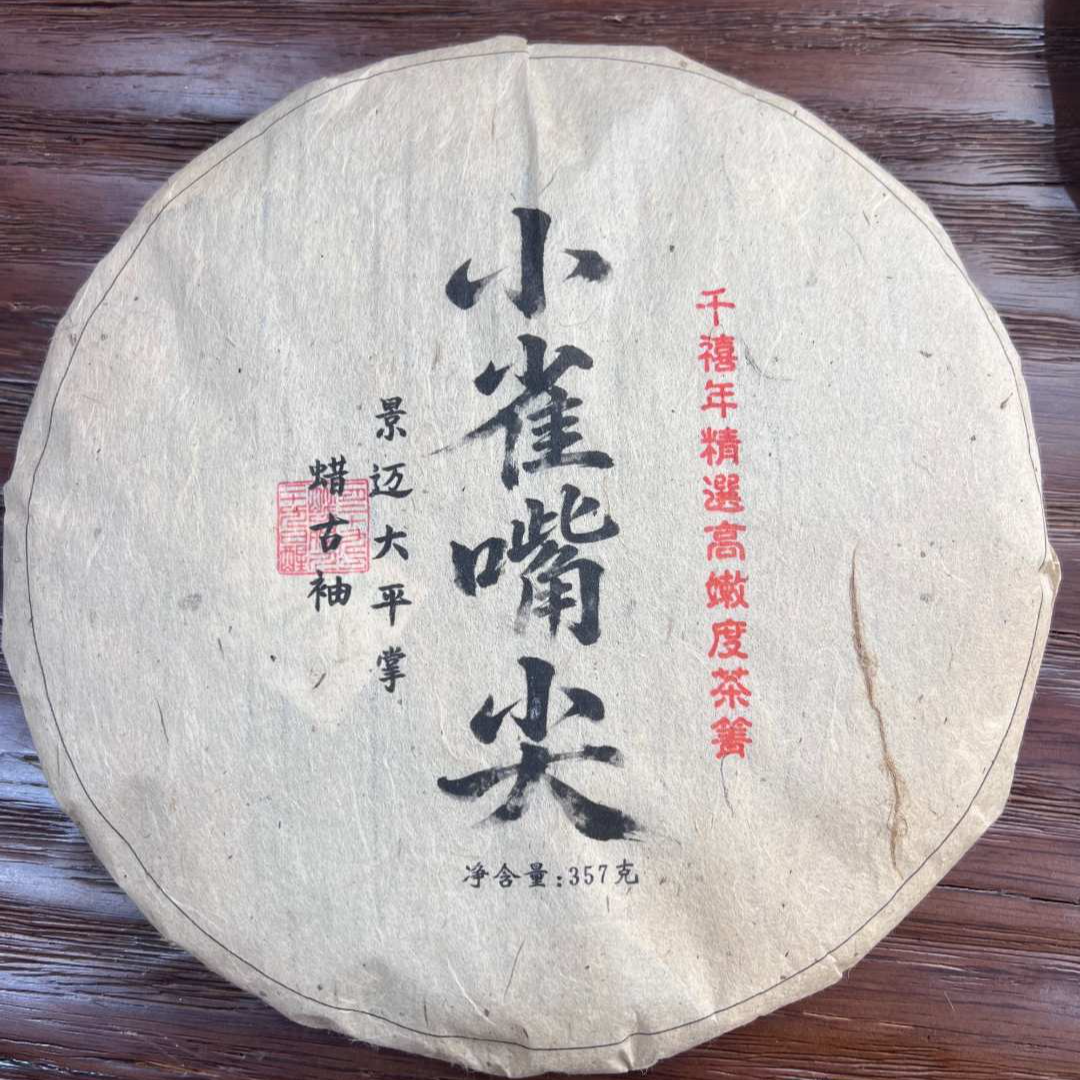 千禧年精選高嫩度茶箐
小雀嘴尖
景迈大平掌
蜡古袖
净含量:357克